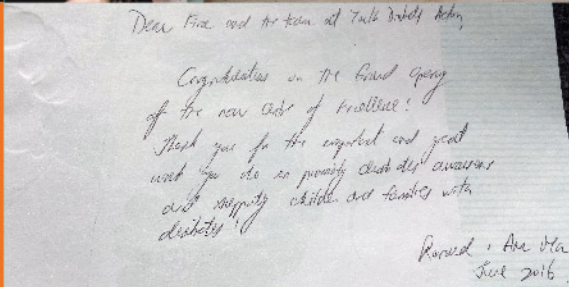 Dear and the team at Diabetes Action
Congratulations on the Grand Opening
of the new Center of Excellence!
Thank you for the important and great
work you do in promoting diabetes awareness
and supporting children and families with
diabetes!
June 2016